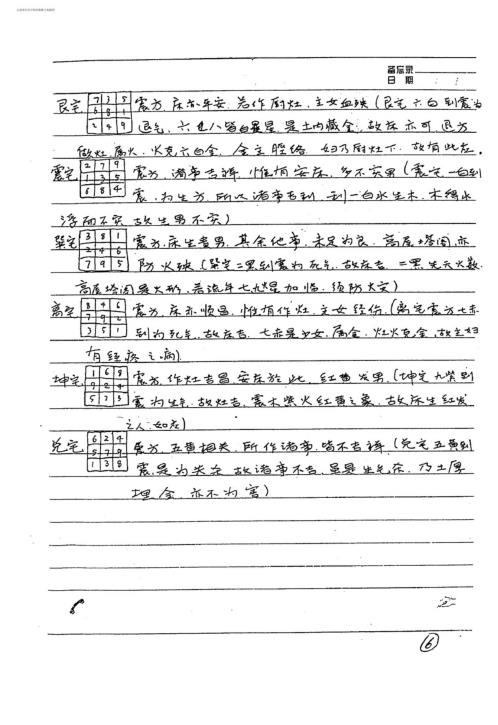 备忘录
日期
艮宅 7 3 5 震方,床亦平安,若作厨灶,主女血殃(艮宅六白到震为
6 8 1 退气,六七八皆白星,是土内藏金,故床亦可,退方
2 4 9
做灶属火,火克六白金,金主经络,妇乃厨灶下,故有此应.
震宅 2 7 9 震方,诸事吉祥,惟有安床,多不实男(震宅一白到
1 3 5 震,为生方,所以诸事吉利,到一白水生木,木得水
6 8 4
浮而不实,故生男不实)
巽宅 3 8 1 震方,床生贵男,其余他事,未足为良,高屋塔阁,亦
2 4 6 防火殃(巽宅二黑到震为死气,故床吉,二黑先天火数,
7 9 5
高屋塔阁是火形,若流年七九星加临,须防火灾)
离宅 8 4 6 震方,床亦顺昌,惟有作灶,主女经伤,(离宅震方七赤
7 9 2 到为死气,故床吉,七赤是少女,属金,灶火克金,故主妇
3 5 1
有经疼之病)
坤宅 1 6 8 震方,作灶吉昌,安床于此,红曲发男,(坤宅九紫到
9 2 4 震为生气,故灶吉,震木紫火红黄之象,故床生红发
5 7 3
之人如应)
兑宅 6 2 4 震方,五黄相关,所作诸事,皆不吉祥(兑宅五黄到
5 7 9 震是为关杀,故诸事不吉,虽是生气宅,乃土厚
1 3 8
埋金,亦不为害)
6